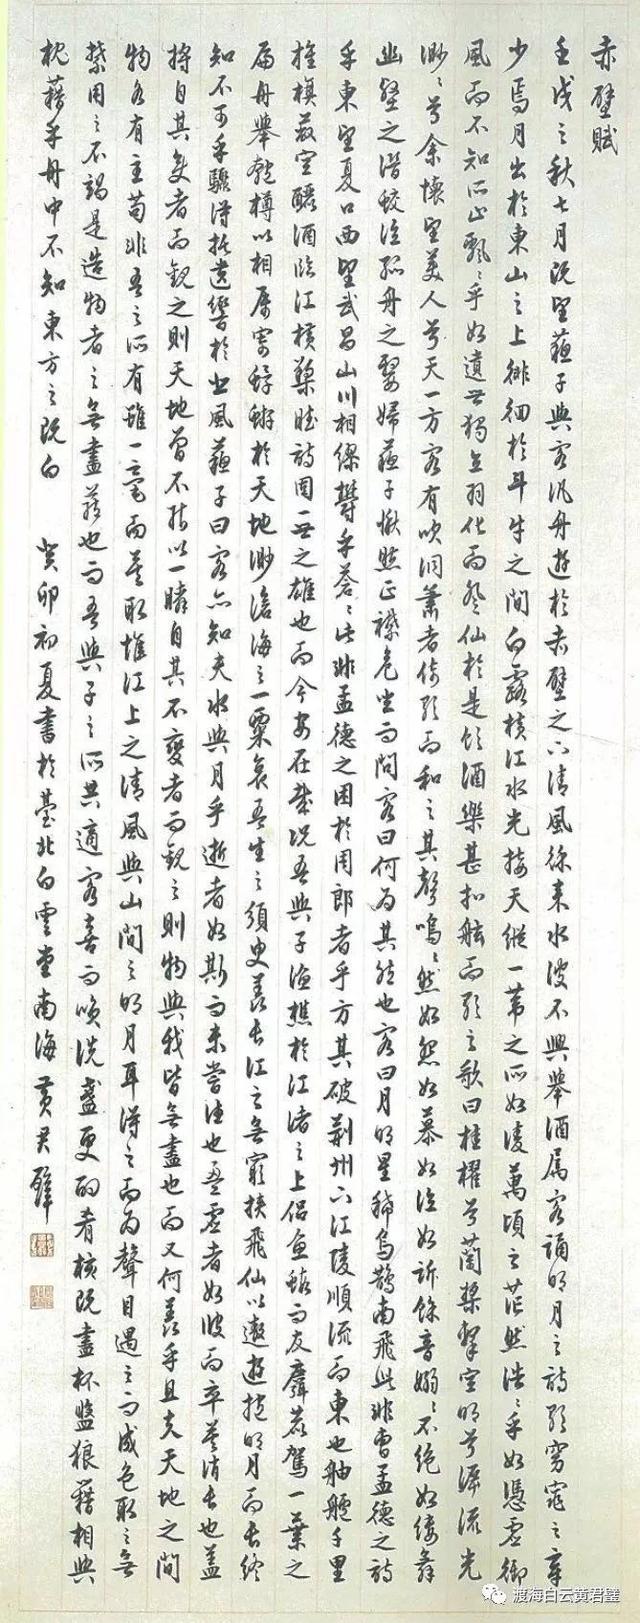 赤壁賦
壬戌之秋七月既望蘇子與客汎舟遊於赤壁之下清風徐來水波不興舉酒屬客誦明月之詩歌窈窕之章
少焉月出於東山之上徘徊於斗牛之間白露橫江水光接天縱一葦之所如凌萬頃之茫然浩浩乎如憑虛御
風而不知所止飄飄乎如遺世獨立羽化而登仙於是飲酒樂甚扣舷而歌之歌曰桂櫂兮蘭槳擊空明兮溯流光
渺渺兮余懷望美人兮天一方客有吹洞簫者倚歌而和之其聲嗚嗚然如怨如慕如泣如訴餘音嫋嫋不絕如縷舞
幽壑之潛蛟泣孤舟之嫠婦蘇子愀然正襟危坐而問客曰何為其然也客曰月明星稀烏鵲南飛此非曹孟德之詩
乎東望夏口西望武昌山川相繆鬱乎蒼蒼此非孟德之困於周郎者乎方其破荊州下江陵順流而東也舳艫千里
旌旗蔽空釃酒臨江橫槊賦詩固一世之雄也而今安在哉況吾與子漁樵於江渚之上侶魚蝦而友麋鹿駕一葉之
扁舟舉匏樽以相屬寄蜉蝣於天地渺滄海之一粟哀吾生之須臾羨長江之無窮挾飛仙以遨遊抱明月而長終
知不可乎驟得託遺響於悲風蘇子曰客亦知夫水與月乎逝者如斯而未嘗往也盈虛者如彼而卒莫消長也蓋
將自其變者而觀之則天地曾不能以一瞬自其不變者而觀之則物與我皆無盡也而又何羨乎且夫天地之間
物各有主苟非吾之所有雖一毫而莫取惟江上之清風與山間之明月耳得之而為聲目遇之而成色取之無
禁用之不竭是造物者之無盡藏也而吾與子之所共適客喜而笑洗盞更酌肴核既盡杯盤狼籍相與
枕藉乎舟中不知東方之既白 癸卯初夏書於臺北白雲堂南海黃君璧
渡海白云黄君璧